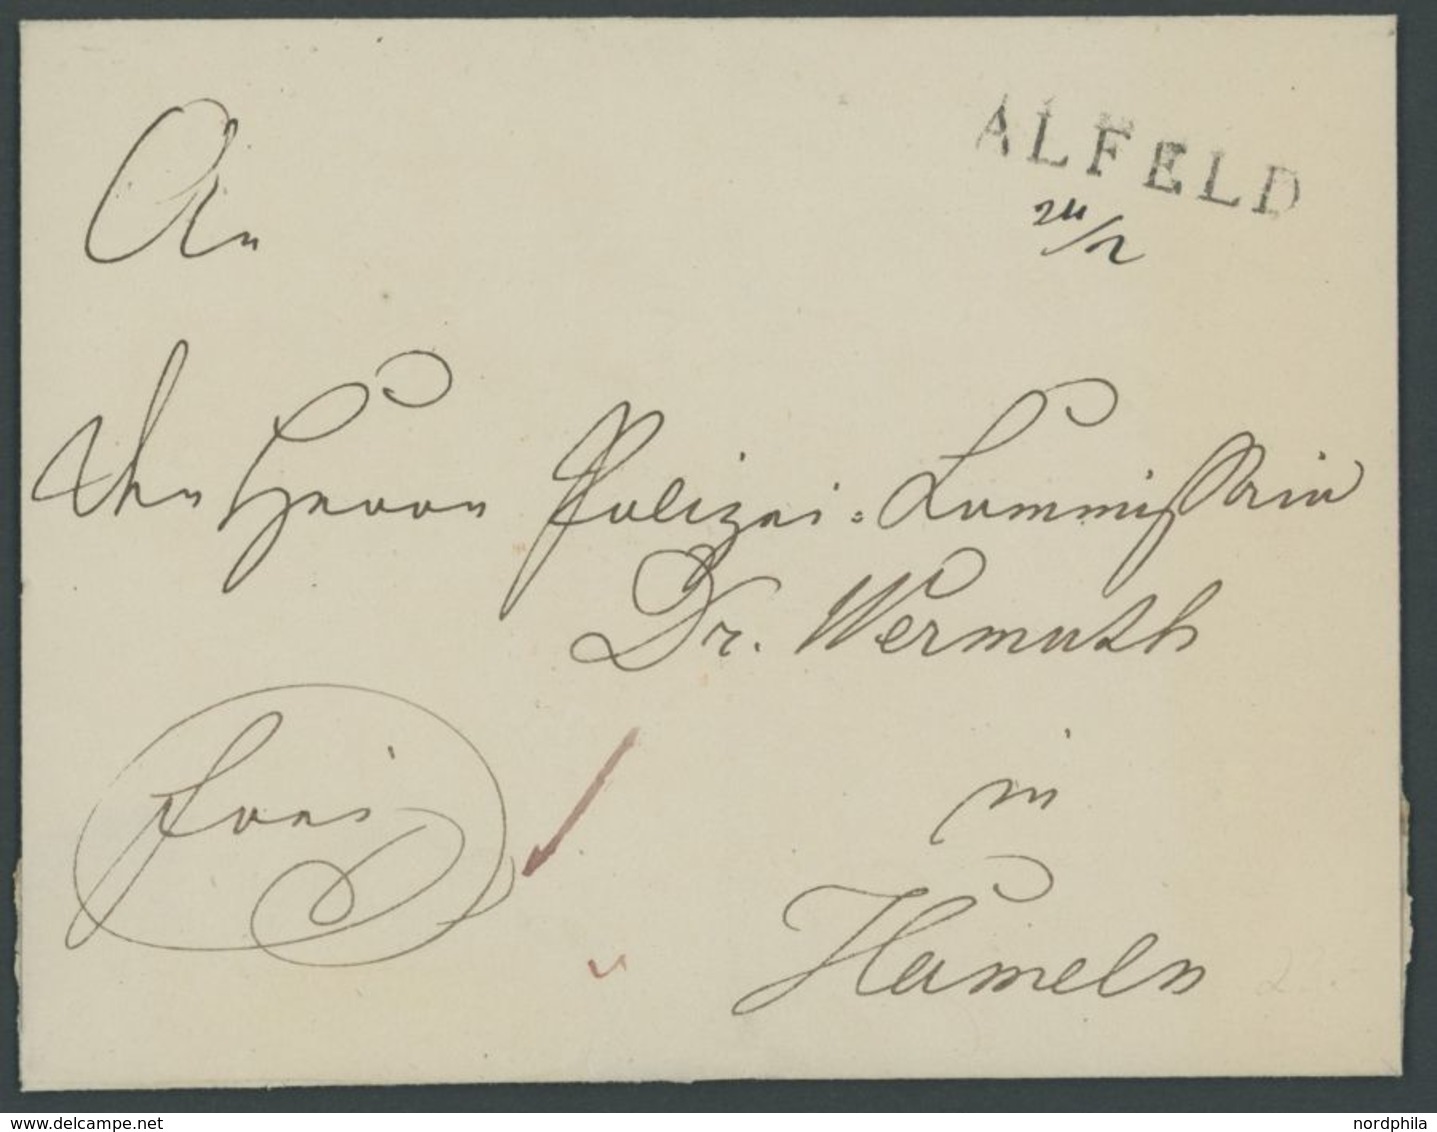 ALFELD
24/2
An
den Herrn Polizei-Commissair
Dr. Wermuth
frei
in
Hameln
www.delcampe.net
nordphila